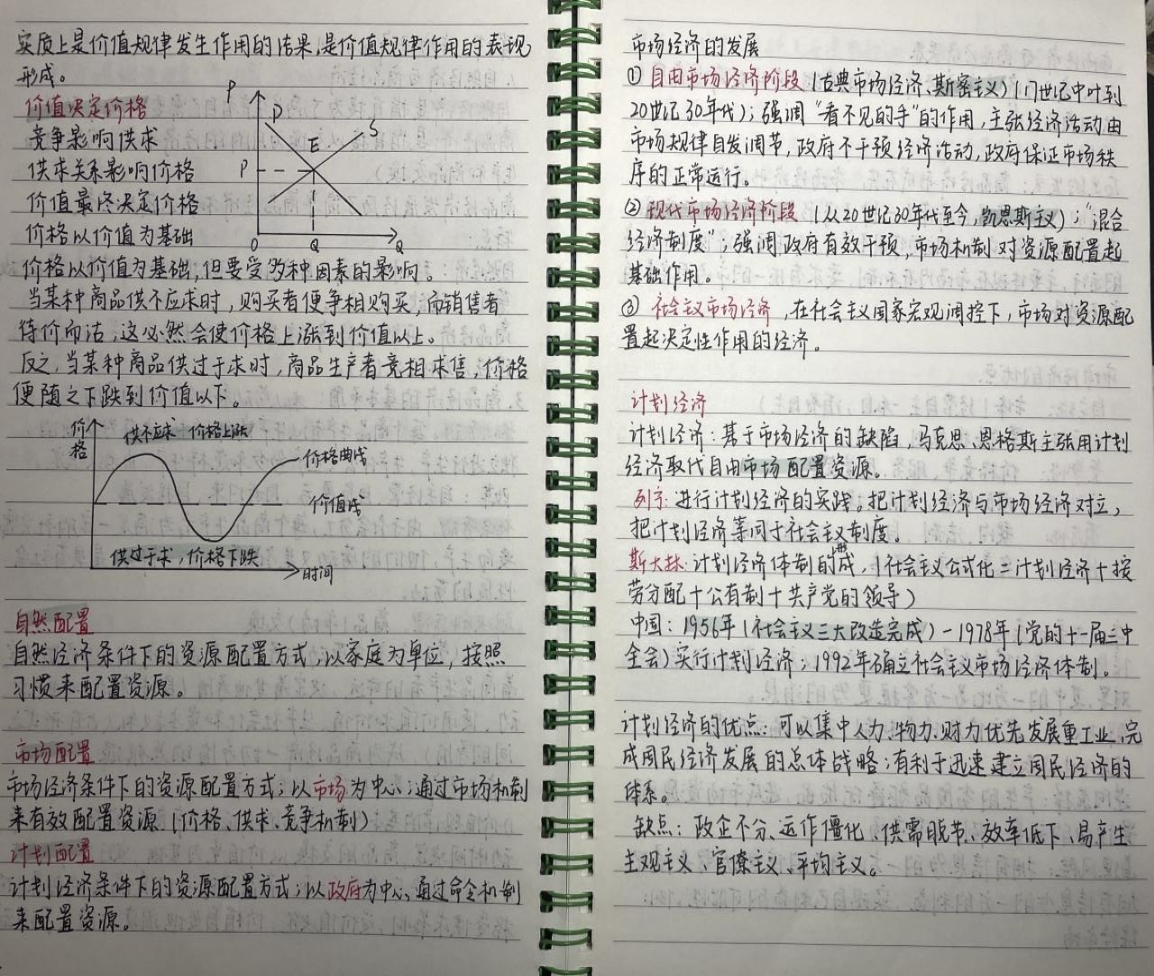 实质上是价值规律发生作用的结果,是价值规律作用的表现
形成。
价值决定价格
竞争影响供求
供求关系影响价格
价值最终决定价格
价格以价值为基础
P
D
S
E
P
O
Q
Q
价格以价值为基础,但要受多种因素的影响。
当某种商品供不应求时,购买者便争相购买,而销售者
待价而沽,这必然会使价格上涨到价值以上。
反之,当某种商品供过于求时,商品生产者竞相求售,价格
便随之下跌到价值以下。
价格
供不应求 价格上涨
价格曲线
价值线
供过于求,价格下跌
时间
自然配置
自然经济条件下的资源配置方式,以家庭为单位,按照
习惯来配置资源。
市场配置
市场经济条件下的资源配置方式;以市场为中心;通过市场机制
来有效配置资源(价格、供求、竞争机制)
计划配置
计划经济条件下的资源配置方式;以政府为中心,通过命令机制
来配置资源。
市场经济的发展
① 自由市场经济阶段(古典市场经济,斯密主义)(17世纪中叶到
20世纪30年代);强调“看不见的手”的作用,主张经济活动由
市场规律自发调节,政府不干预经济活动,政府保证市场秩
序的正常运行。
② 现代市场经济阶段(从20世纪30年代至今,凯恩斯主义);“混合
经济制度”;强调政府有效干预,市场机制对资源配置起
基础作用。
③ 社会主义市场经济,在社会主义国家宏观调控下,市场对资源配
置起决定性作用的经济。
计划经济
计划经济:基于市场经济的缺陷,马克思、恩格斯主张用计划
经济取代自由市场配置资源。
列宁:进行计划经济的实践。把计划经济与市场经济对立,
把计划经济等同于社会主义制度。
斯大林:计划经济体制的形成,(社会主义公式化=计划经济+按
劳分配+公有制+共产党的领导)
中国:1956年(社会主义三大改造完成)-1978年(党的十一届三中
全会)实行计划经济;1992年确立社会主义市场经济体制。
计划经济的优点:可以集中人力、物力、财力优先发展重工业,完
成国民经济发展的总体战略;有利于迅速建立国民经济的
体系。
缺点:政企不分、运作僵化、供需脱节、效率低下、易产生
主观主义、官僚主义、平均主义。